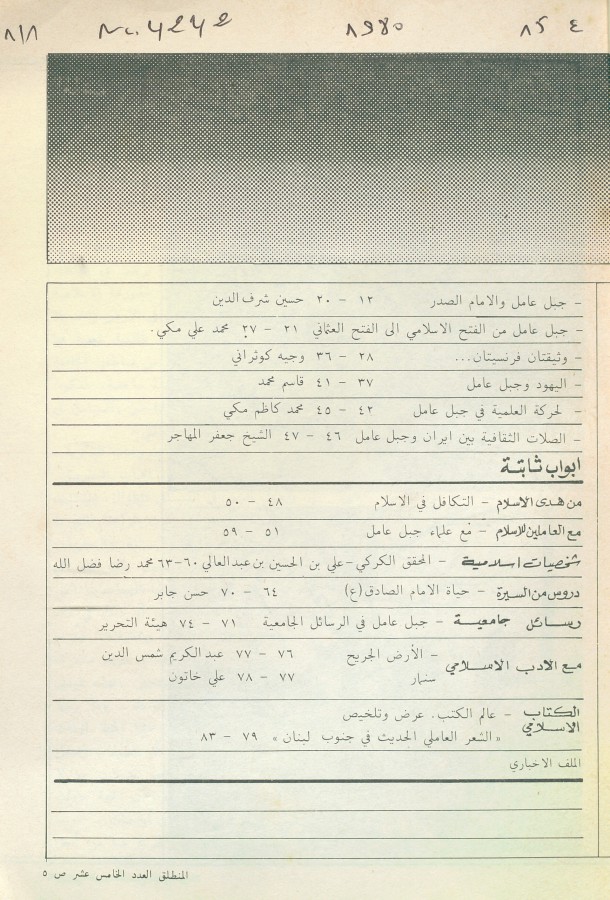 ٨/٨ No. 4242 ١٩٨٠ ٨٥ ٤
- جبل عامل والامام الصدر ١٢ - ٢٠ حسين شرف الدين
- جبل عامل من الفتح الاسلامي الى الفتح العثماني ٢١ - ٢٧ محمد علي مكي.
- وثيقتان فرنسيتان... ٢٨ - ٣٦ وجيه كوثراني
- اليهود وجبل عامل ٣٧ - ٤١ قاسم محمد
- لحركة العلمية في جبل عامل ٤٢ - ٤٥ محمد كاظم مكي
- الصلات الثقافية بين ايران وجبل عامل ٤٦ - ٤٧ الشيخ جعفر المهاجر
ابواب ثابتة
من هدى الاسلام - التكافل في الاسلام ٤٨ - ٥٠
مع العاملين للاسلام - مع علماء جبل عامل ٥١ - ٥٩
شخصيات اسلامية - المحقق الكركي-علي بن الحسين بن عبد العالي ٦٠-٦٣ محمد رضا فضل الله
دروس من السيرة - حياة الامام الصادق(ع) ٦٤ - ٧٠ حسن جابر
رسائل جامعية - جبل عامل في الرسائل الجامعية ٧١ - ٧٤ هيئة التحرير
مع الادب الاسلامي - الأرض الجريح ٧٦ - ٧٧ عبد الكريم شمس الدين
سنمار ٧٧ - ٧٨ علي خاتون
الكتاب الاسلامي - عالم الكتب. عرض وتلخيص
« الشعر العاملي الحديث في جنوب لبنان » ٧٩ - ٨٣
الملف الاخباري
المنطلق العدد الخامس عشر ص ٥